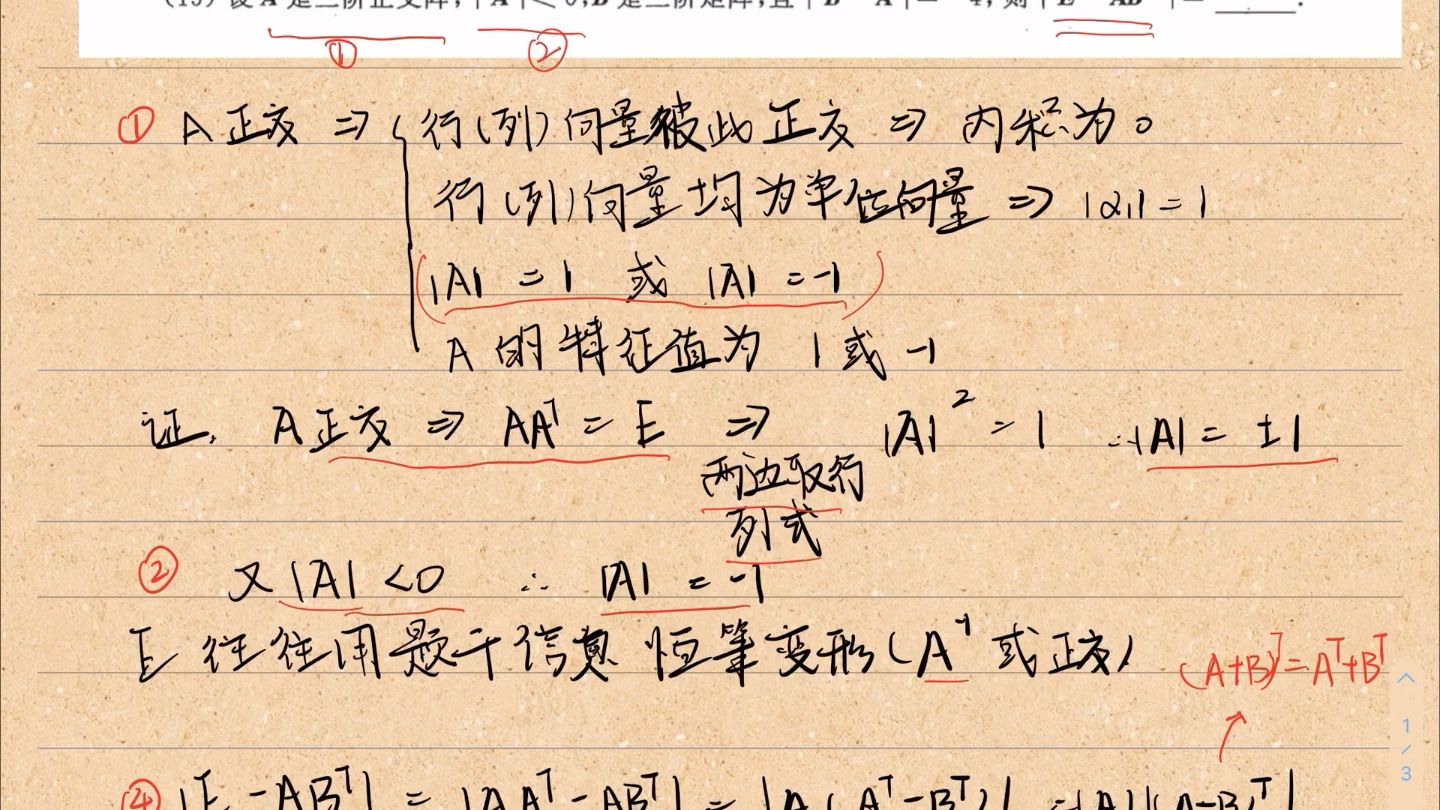 (13) 设 A 是三阶正交阵, |A| < 0, B 是三阶矩阵, 且 | B - A | = -4, 则 | E - ABᵀ | = ______.
① ②
① A 正交 ⇒ { 行(列)向量彼此正交 ⇒ 内积为0
行(列)向量均为单位向量 ⇒ |α₁| = 1
(|A| = 1 或 |A| = -1)
A 的特征值为 1 或 -1
证. A正交 ⇒ AAᵀ = E ⇒ |A|² = 1 ∴ |A| = ±1
两边取行
列式
② 又 |A| < 0 ∴ |A| = -1
E 往往用题干信息 恒等变形(A⁻¹ 或正交)
(A+B)ᵀ = Aᵀ+Bᵀ
1
/
3
④ |E - ABᵀ| = |AAᵀ - ABᵀ| = |A(Aᵀ - Bᵀ)| = |A||(A-B)ᵀ|